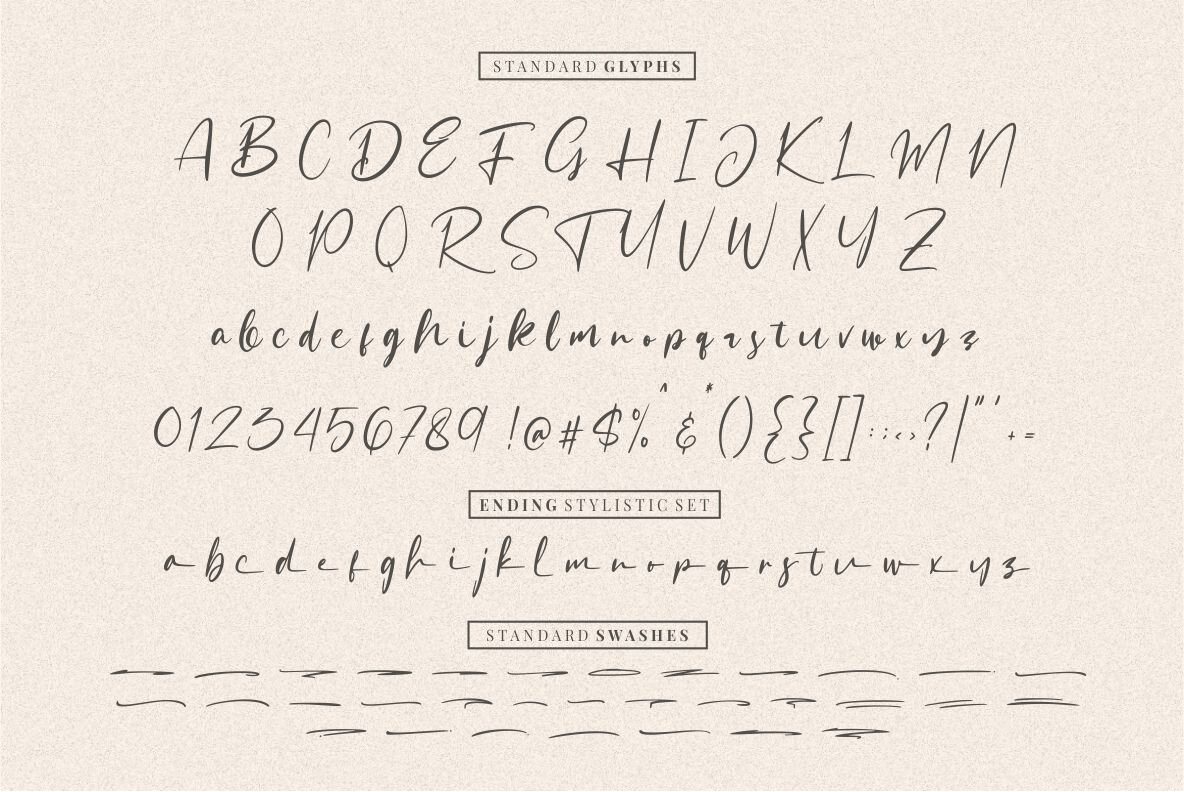 STANDARD GLYPHS
A B C D E F G H I J K L M N
O P Q R S T U V W X Y Z
a b c d e f g h i j k l m n o p q r s t u v w x y z
0 1 2 3 4 5 6 7 8 9 ! @ # $ % ^ & * ( ) { } [ ] : ; < > ? | " ' + =
ENDING STYLISTIC SET
a b c d e f g h i j k l m n o p q r s t u v w x y z
STANDARD SWASHES